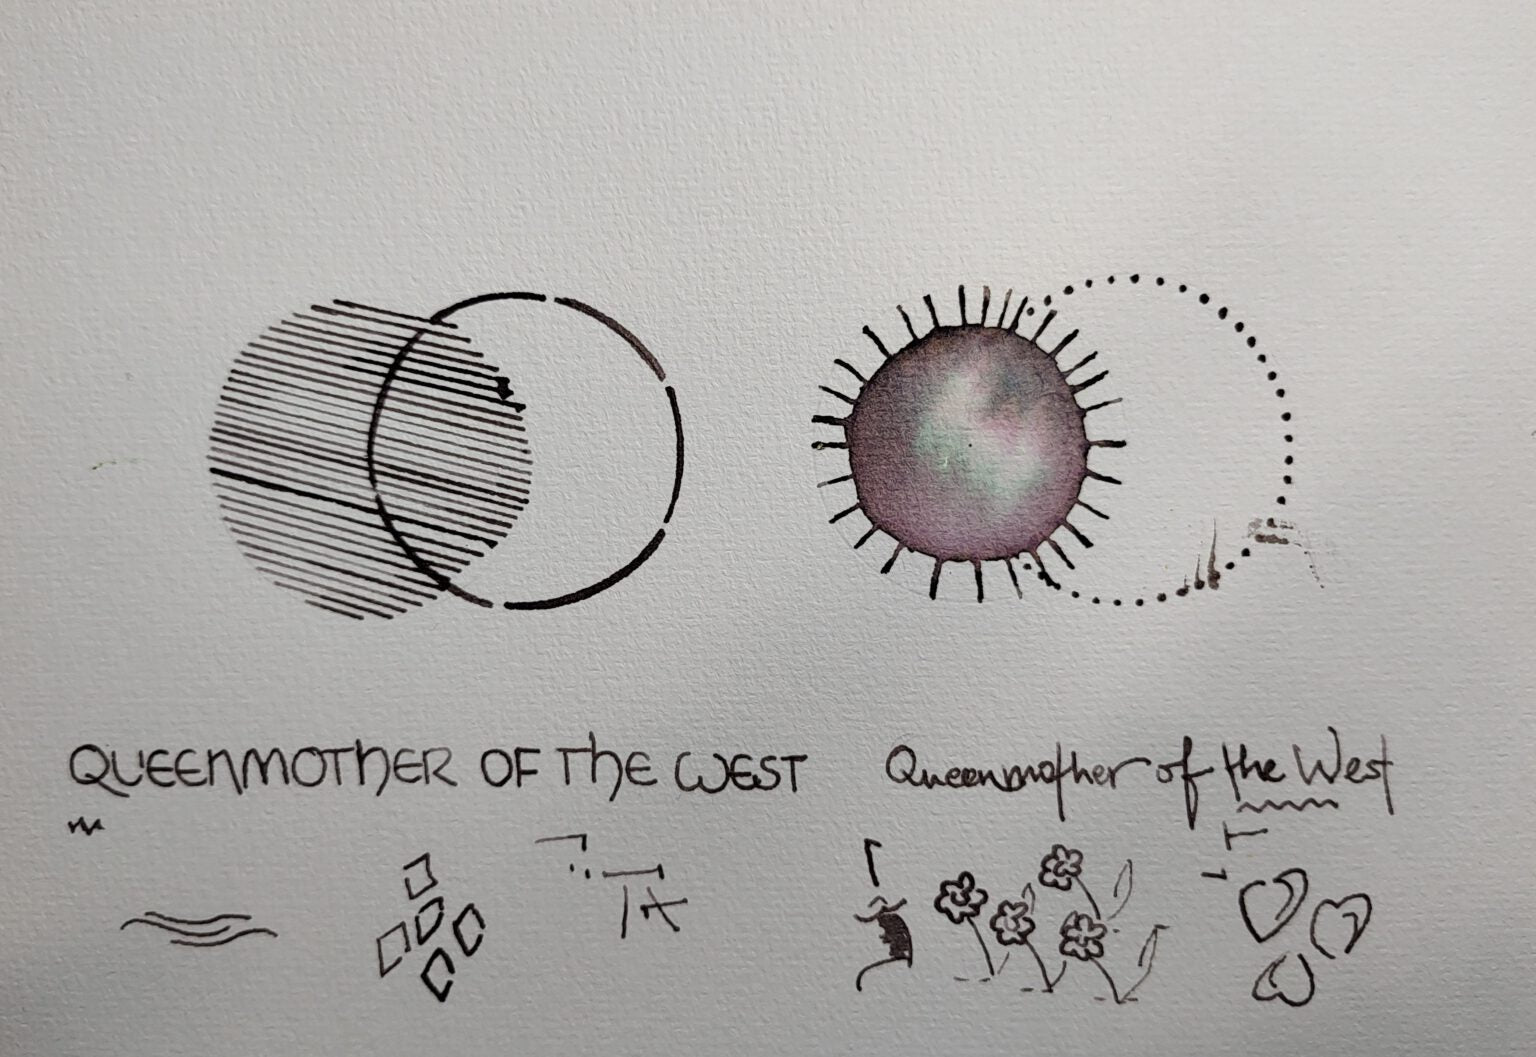 QUEENMOTHER OF THE WEST
Queenmother of the West